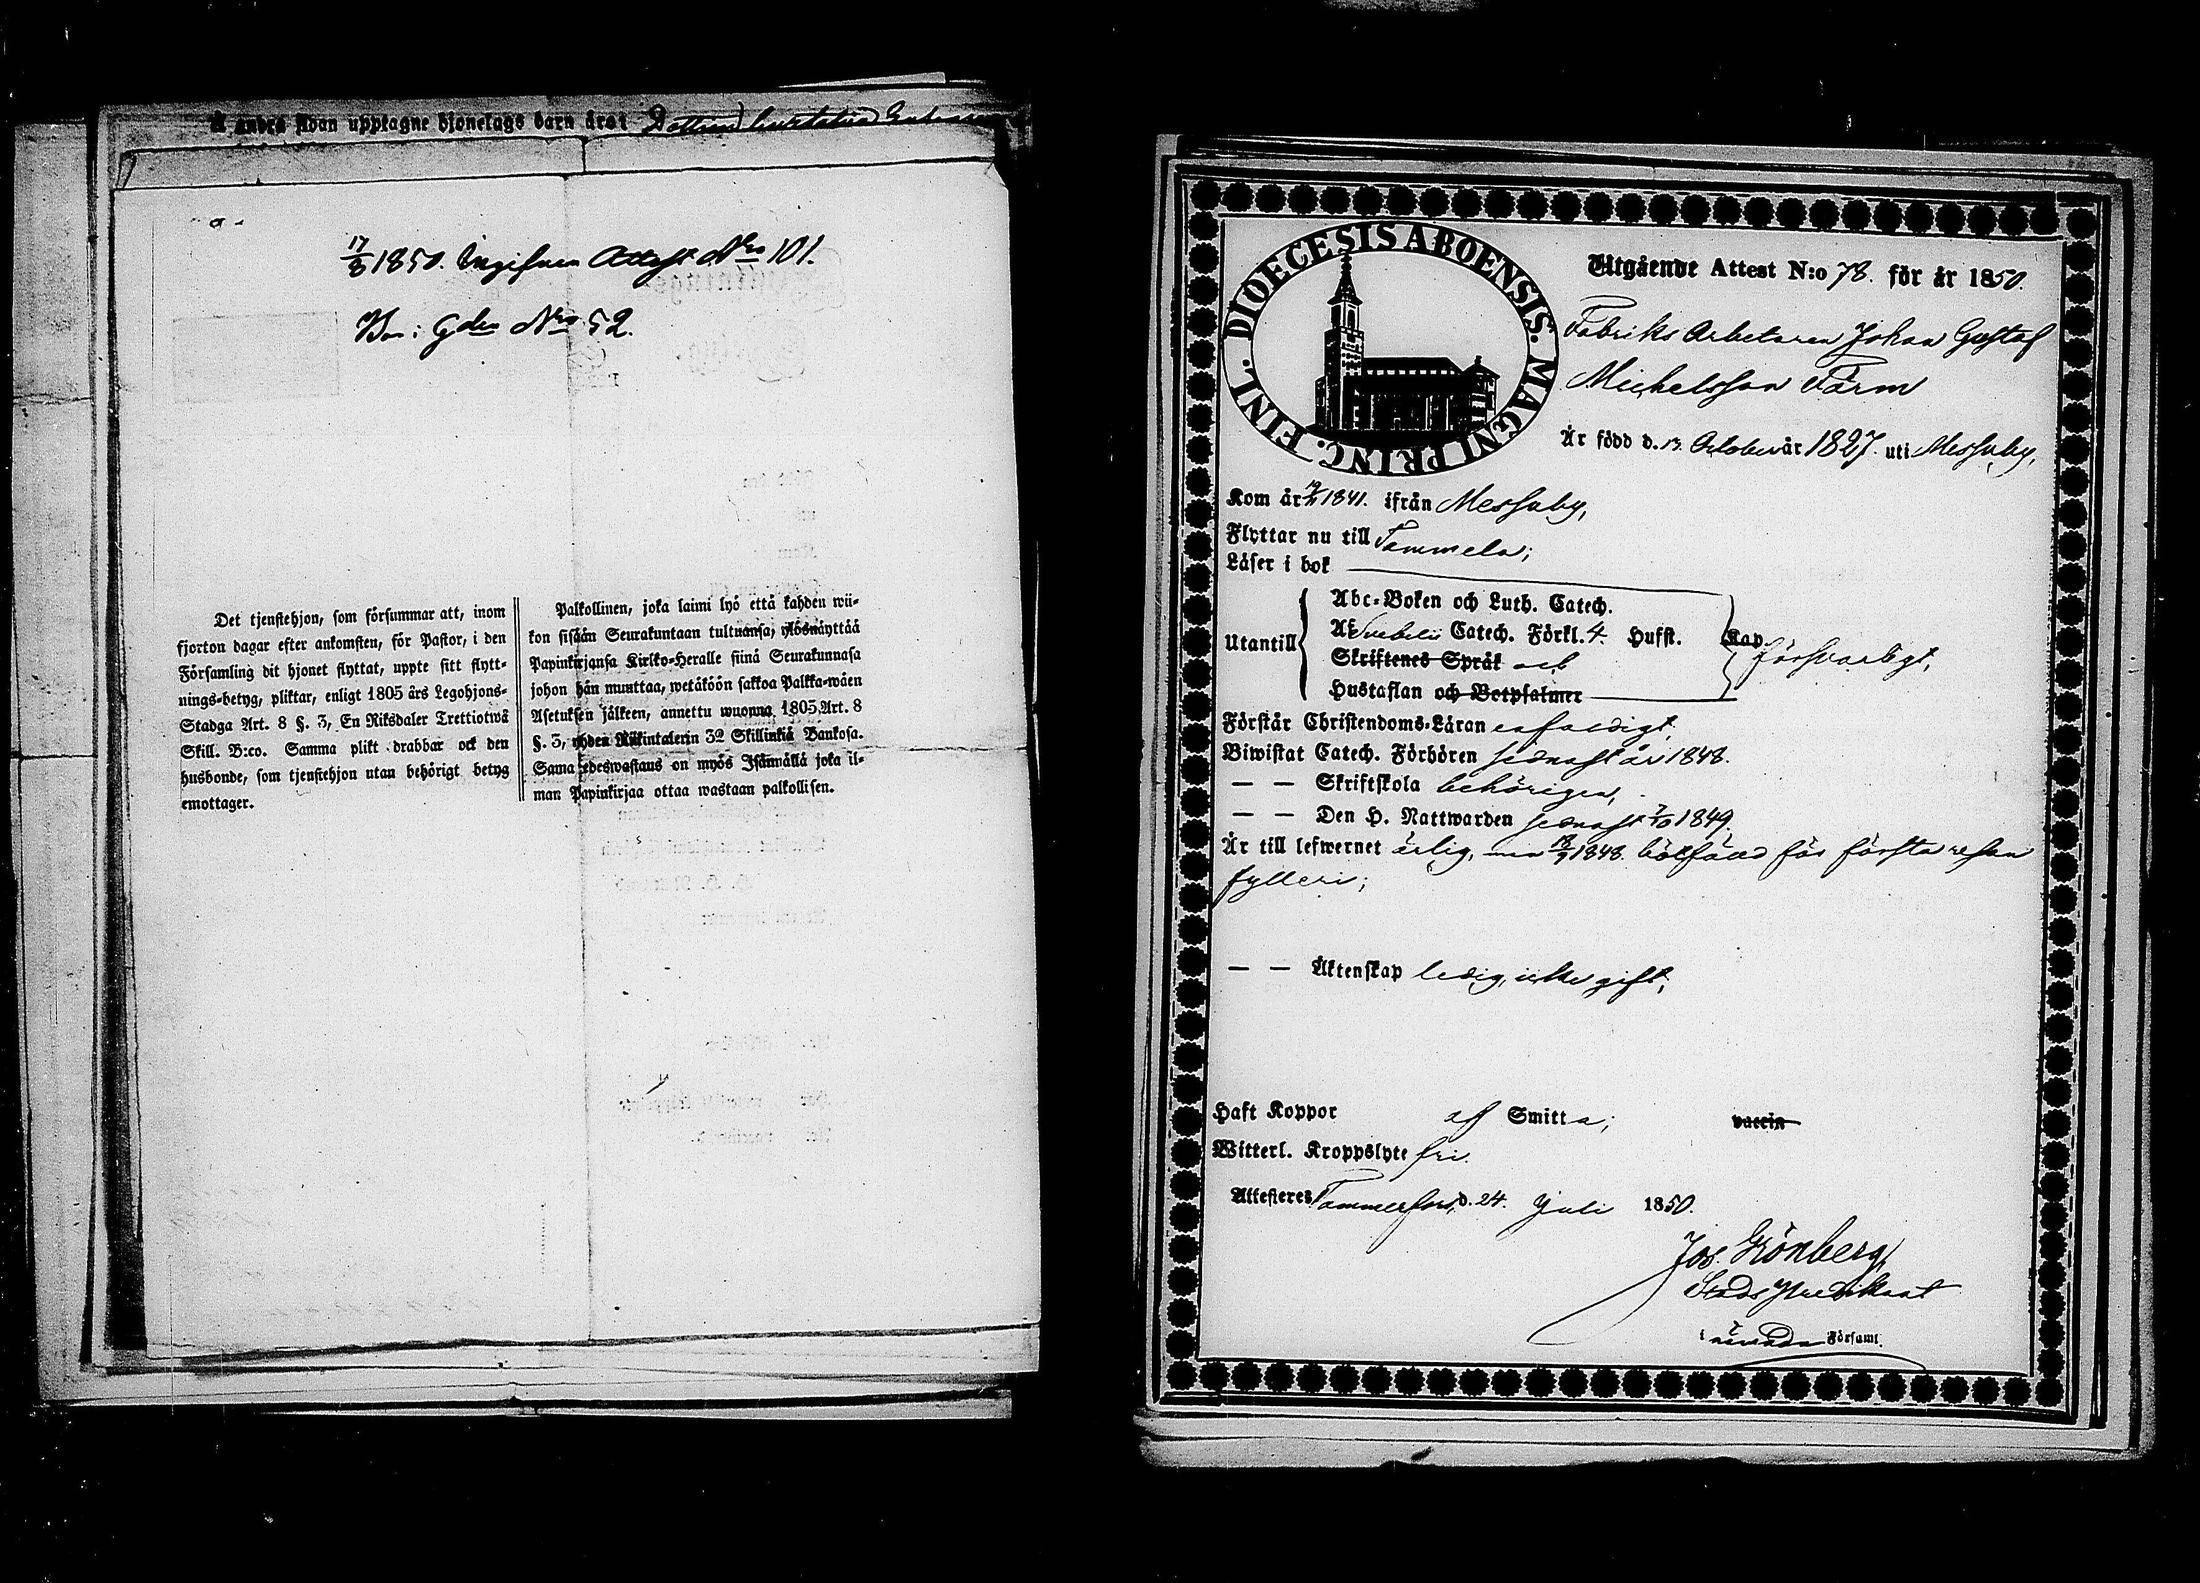 Å andra sidan upptagne hjonelags barn äro:
17/8 1850. Ingifven Attest Nro 101.
No 52.
Det tjenstehjon, som försummar att, inom
fjorton dagar efter ankomsten, för Pastor, i den
Församling dit hjonet flyttat, uppte sitt flytt-
nings-betyg, pliktar, enligt 1805 års Legohjons-
Stadga Art. 8 §. 3, En Riksdaler Trettiotwå
Skill. B:co. Samma plikt drabbar ock den
husbonde, som tjenstehjon utan behörigt betyg
emottager.
Palkollinen, joka laimi lyö että kahden wii-
kon sisään Seurakuntaan tultuansa, ylösnäyttää
Papinkirjansa Kirkko-Heralle siinä Seurakunnasa
johon hän muuttaa, wetäköön sakkoa Palkka-wäen
Asetuksen jälkeen, annettu wuonna 1805 Art. 8
§. 3, yhden Riikintalerin 32 Skillinkiä Bankosa.
Sama edeswastaus on myös Isännällä joka il-
man Papinkirjaa ottaa wastaan palkollisen.
DIOECESIS ABOENSIS. MAGNI PRINC. FINL.
Utgående Attest N:o 78. för år 1850.
Fabriks Arbetaren Johan Gustaf
Michelsson Färm
Är född d. 13. October år 1827. uti Messuby,
Kom år 1841. ifrån Messuby,
Flyttar nu till Tammela;
Läser i bok
Utantill
Abc-Boken och Luth. Catech.
Af Svebelii Catech. Förkl. 4. Hufst. Kap
Skriftenes Språk och
Hustaflan och Botpsalmer
försvarligt,
Förstår Christendoms-Läran enfaldigt;
Biwistat Catech. Förhören sednast år 1848.
— — Skriftskola behörigen,
— — Den H. Nattwarden sednast 7/10 1849.
Är till lefwernet ärlig, men 18/9 1848. bötfäld för första resan
fylleri;
— — Äktenskap ledig, icke gift;
Haft Koppor af Smitta; vaccin
Witterl. Kroppslyte fri.
Attesteres Tammerfors, d. 24. Juli 1850.
Jos. Grönberg
Stads Predikant
i nämnda Församl.